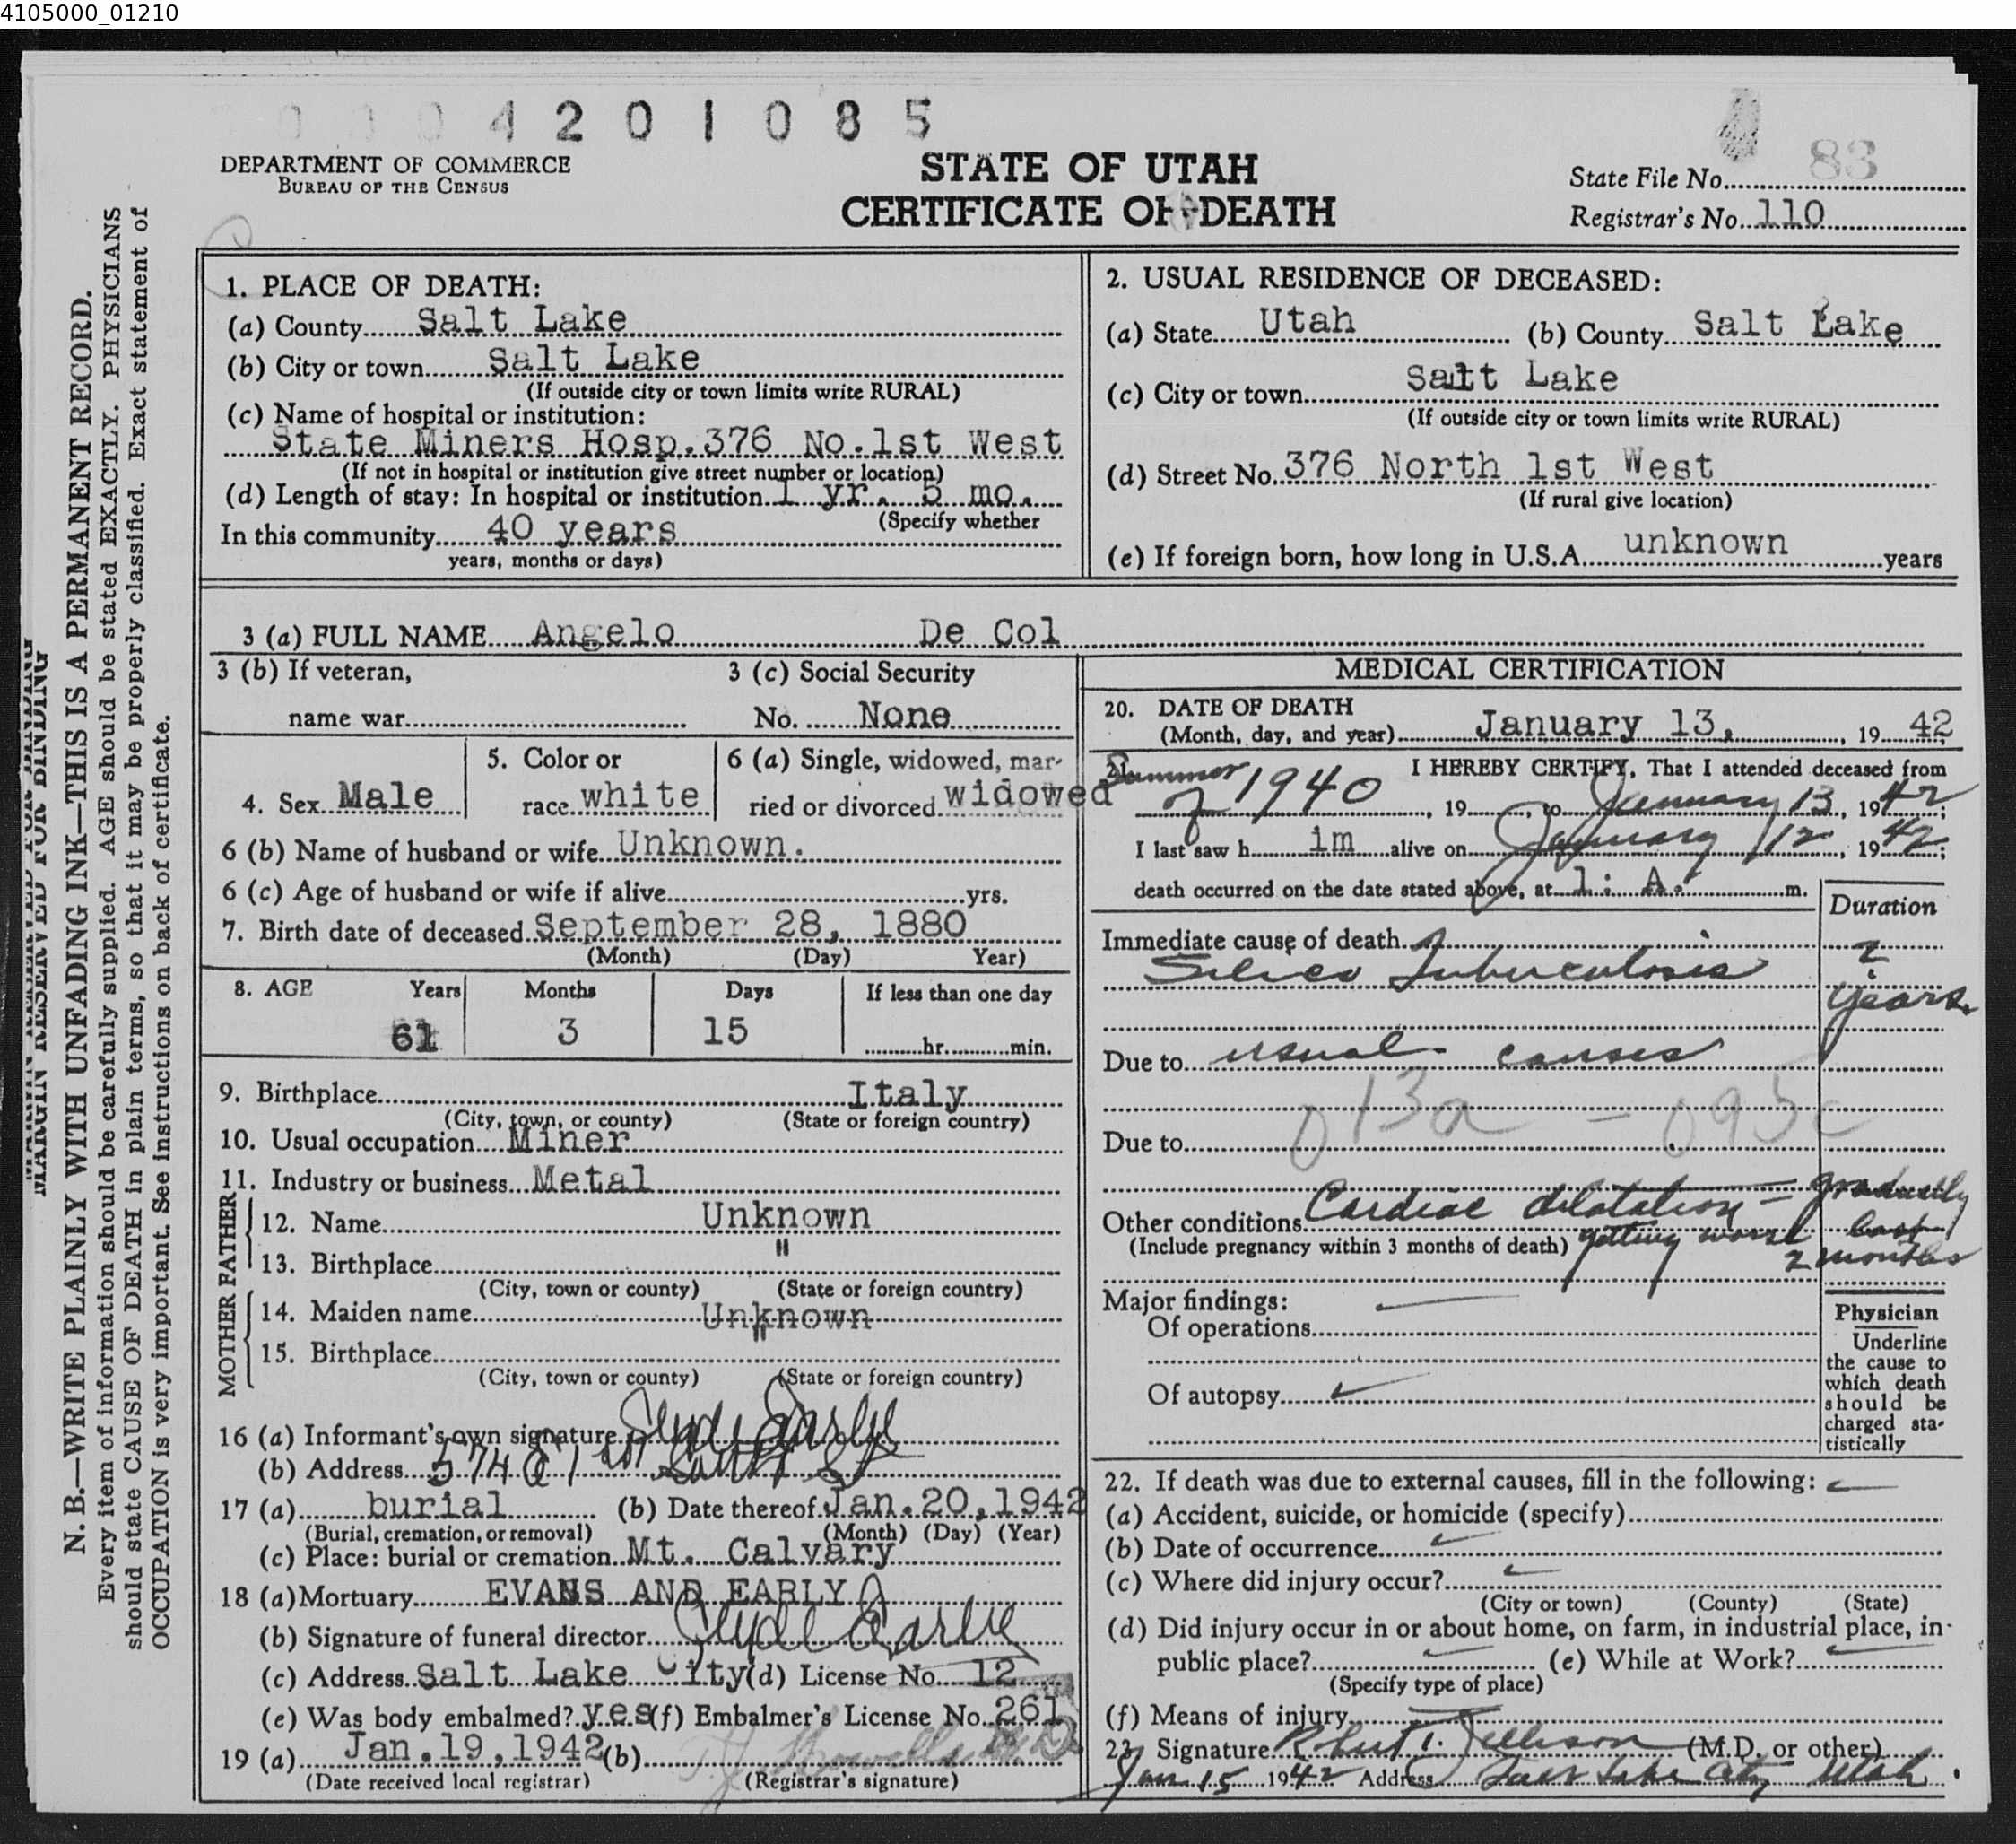 4105000_01210
0 0 0 4 2 0 1 0 8 5
DEPARTMENT OF COMMERCE
BUREAU OF THE CENSUS
STATE OF UTAH
CERTIFICATE OF DEATH
State File No. 83
Registrar's No. 110
MARGIN RESERVED FOR BINDING
N. B.—WRITE PLAINLY WITH UNFADING INK—THIS IS A PERMANENT RECORD.
Every item of information should be carefully supplied. AGE should be stated EXACTLY. PHYSICIANS
should state CAUSE OF DEATH in plain terms, so that it may be properly classified. Exact statement of
OCCUPATION is very important. See instructions on back of certificate.
1. PLACE OF DEATH:
(a) County Salt Lake
(b) City or town Salt Lake
(If outside city or town limits write RURAL)
(c) Name of hospital or institution:
State Miners Hosp.376 No.1st West
(If not in hospital or institution give street number or location)
(d) Length of stay: In hospital or institution 1 yr. 5 mo.
(Specify whether
In this community 40 years
years, months or days)
2. USUAL RESIDENCE OF DECEASED:
(a) State Utah (b) County Salt Lake
(c) City or town Salt Lake
(If outside city or town limits write RURAL)
(d) Street No. 376 North 1st West
(If rural give location)
(e) If foreign born, how long in U.S.A. unknown years
3 (a) FULL NAME Angelo De Col
3 (b) If veteran,
name war
3 (c) Social Security
No. None
4. Sex Male
5. Color or
race white
6 (a) Single, widowed, mar-
ried or divorced widowed
6 (b) Name of husband or wife Unknown.
6 (c) Age of husband or wife if alive yrs.
7. Birth date of deceased September 28, 1880
(Month) (Day) Year)
8. AGE Years Months Days If less than one day
61 3 15 hr. min.
9. Birthplace Italy
(City, town, or county) (State or foreign country)
10. Usual occupation Miner
11. Industry or business Metal
FATHER
12. Name Unknown
13. Birthplace "
(City, town or county) (State or foreign country)
MOTHER
14. Maiden name Unknown
15. Birthplace "
(City, town or county) (State or foreign country)
16 (a) Informant's own signature Clyde Earle
(b) Address 574 E 1st South St
17 (a) burial (b) Date thereof Jan.20,1942
(Burial, cremation, or removal) (Month) (Day) (Year)
(c) Place: burial or cremation Mt. Calvary
18 (a) Mortuary EVANS AND EARLY
(b) Signature of funeral director Clyde Earle
(c) Address Salt Lake City (d) License No. 12
(e) Was body embalmed? yes (f) Embalmer's License No. 261
19 (a) Jan.19,1942 (b) M.D.
(Date received local registrar) (Registrar's signature)
MEDICAL CERTIFICATION
20. DATE OF DEATH
(Month, day, and year) January 13, , 19 42
21. I HEREBY CERTIFY, That I attended deceased from
Summer of 1940 , 19 , to January 13, 1942;
I last saw h im alive on January 12, 1942;
death occurred on the date stated above, at 1: A. m.
Duration
Immediate cause of death
Silico Tuberculosis ? years
Due to usual causes
013a - 095c
Due to
Other conditions Cardiac dilatation - gradually
getting worse last
2 months
(Include pregnancy within 3 months of death)
Major findings:
Of operations
Of autopsy
Physician
Underline
the cause to
which death
should be
charged sta-
tistically
22. If death was due to external causes, fill in the following:
(a) Accident, suicide, or homicide (specify)
(b) Date of occurrence
(c) Where did injury occur?
(City or town) (County) (State)
(d) Did injury occur in or about home, on farm, in industrial place, in
public place? (e) While at Work?
(Specify type of place)
(f) Means of injury
23. Signature Robert (M.D. or other)
Jan 15 1942 Address Salt Lake City Utah.